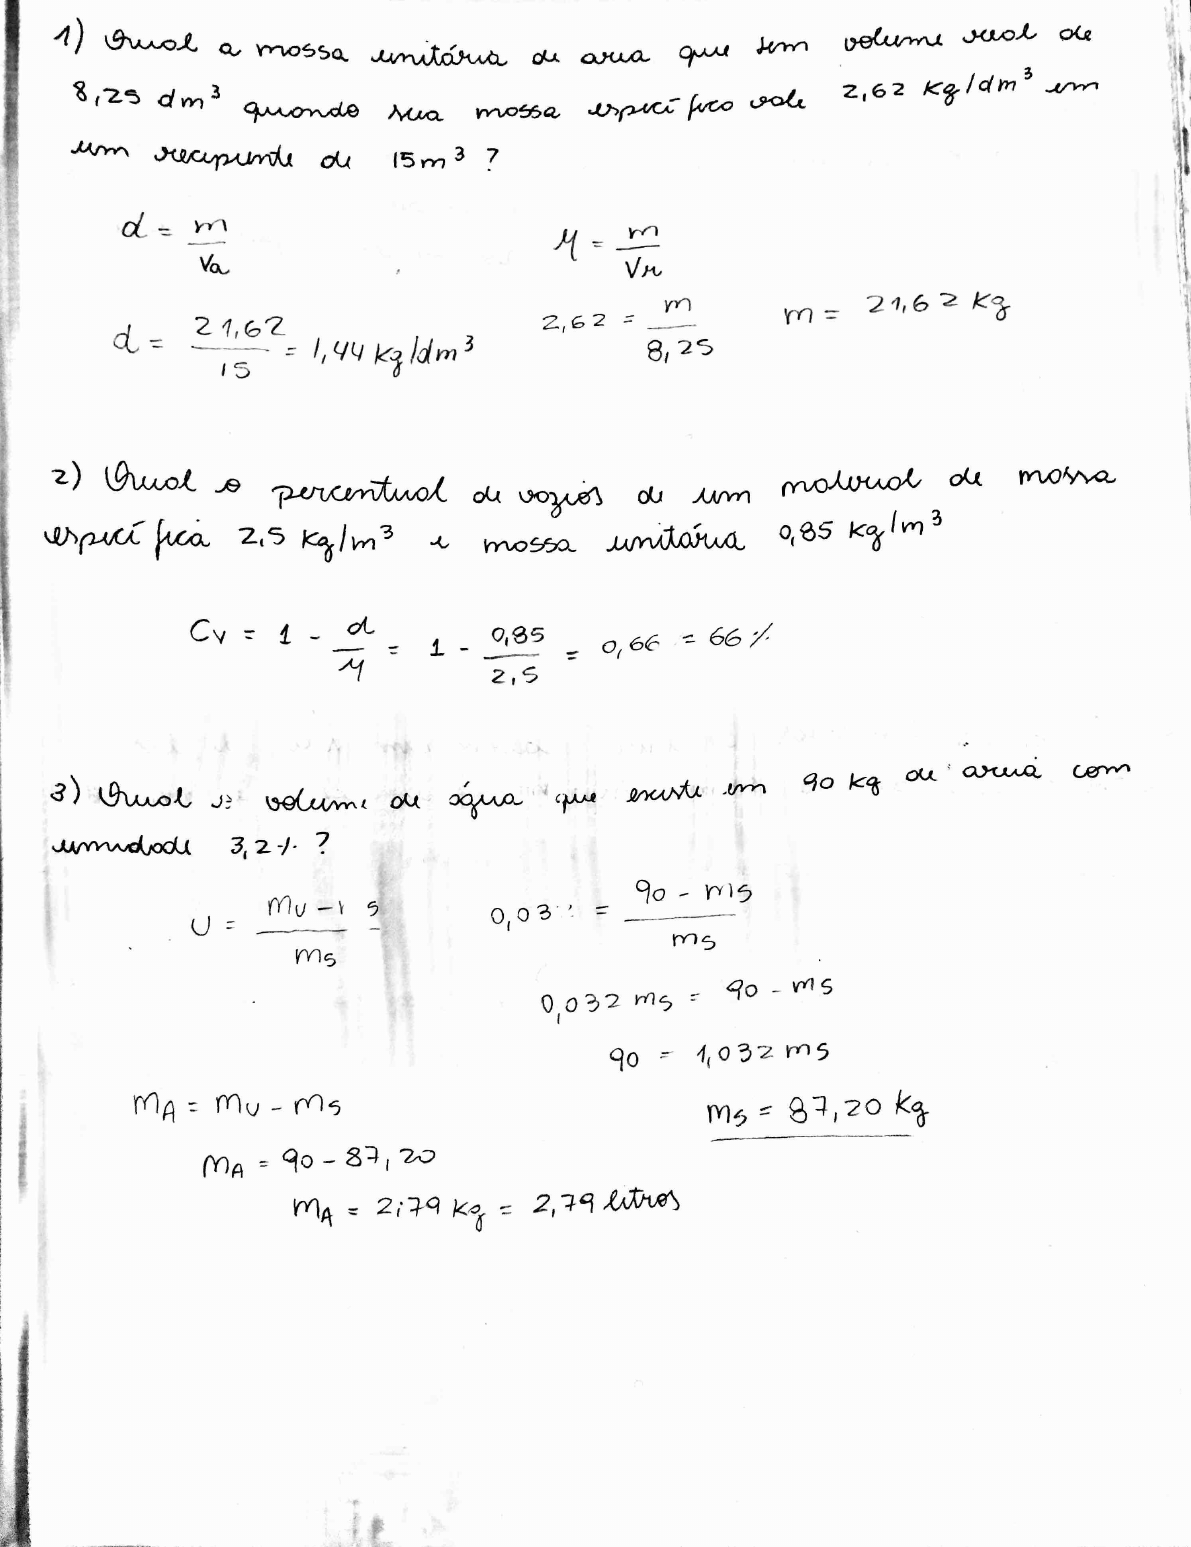 1) Qual a massa unitária de areia que tem volume real de
8,25 dm³ quando sua massa específica vale 2,62 kg/dm³ em
um recipiente de 15m³ ?
d = m/Va
M = m/Vr
d = 21,62/15 = 1,44 kg/dm³
2,62 = m/8,25
m = 21,62 kg
2) Qual o percentual de vazios de um material de massa
específica 2,5 kg/m³ e massa unitária 0,85 kg/m³
Cv = 1 - d/M = 1 - 0,85/2,5 = 0,66 = 66%
3) Qual volume de água que existe em 90 kg de areia com
umidade 3,2% ?
U = mu - s/ms
0,03 = 90 - ms/ms
0,032 ms = 90 - ms
90 = 1,032 ms
ms = 87,20 kg
mA = mu - ms
mA = 90 - 87,20
mA = 2,79 kg = 2,79 litros